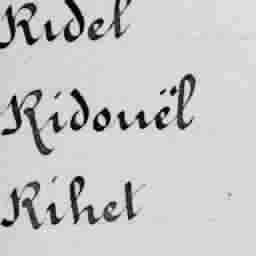 Ridel
Ridouël
Rihet